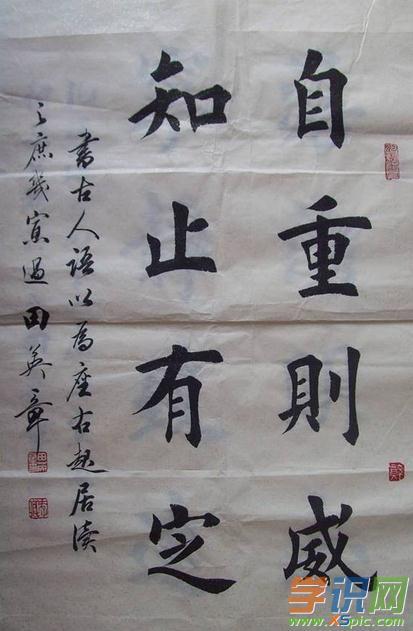 自重則威
知止有定
書古人語以為座右起居讀
之庶幾寡過田英章
学识网
www.XSpic.com